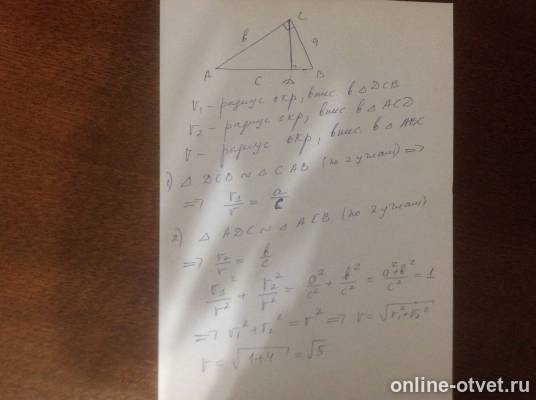 C
b
a
A
C
D
B
r₁ - радиус окр, впис. в △ DCB
r₂ - радиус окр, впис. в △ ACD
r - радиус окр, впис. в △ ABC
1) △ DCB ~ △ CAB (по 2 углам) ⇒
⇒ r₁/r = a/c
2) △ ADC ~ △ ACB (по 2 углам)
⇒ r₂/r = b/c
r₁²/r² + r₂²/r² = a²/c² + b²/c² = a²+b²/c² = 1
⇒ r₁² + r₂² = r² ⇒ r = √r₁²+r₂²
r = √1+4 = √5
online-otvet.ru